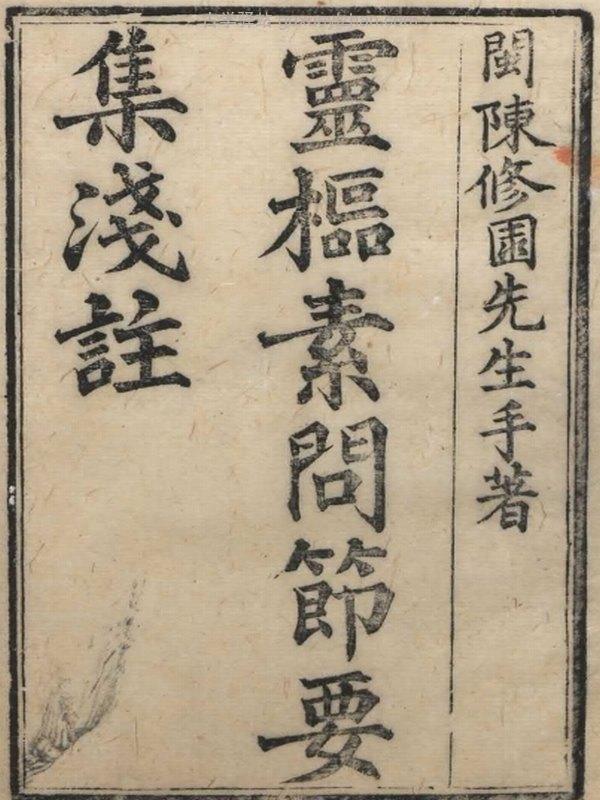 閩陳修園先生手著
靈樞素問節要
集淺註